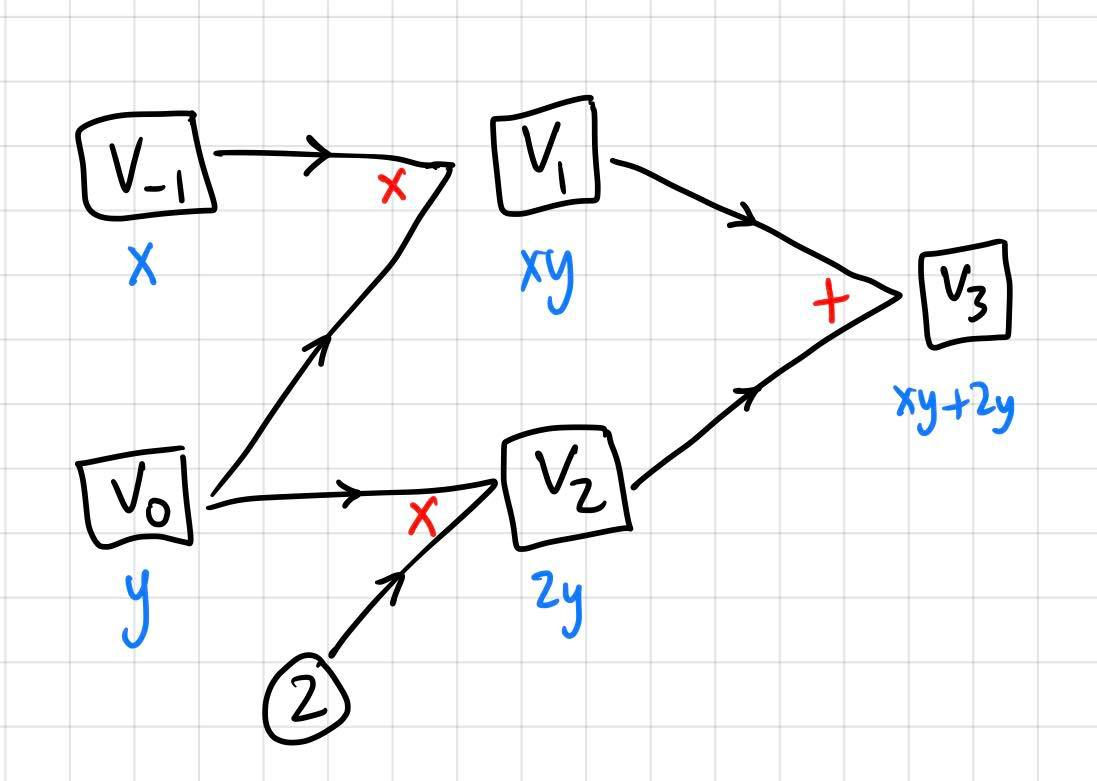 V₋₁
x
x
V₁
xy
V₃
+
xy+2y
V₀
y
x
V₂
2y
2